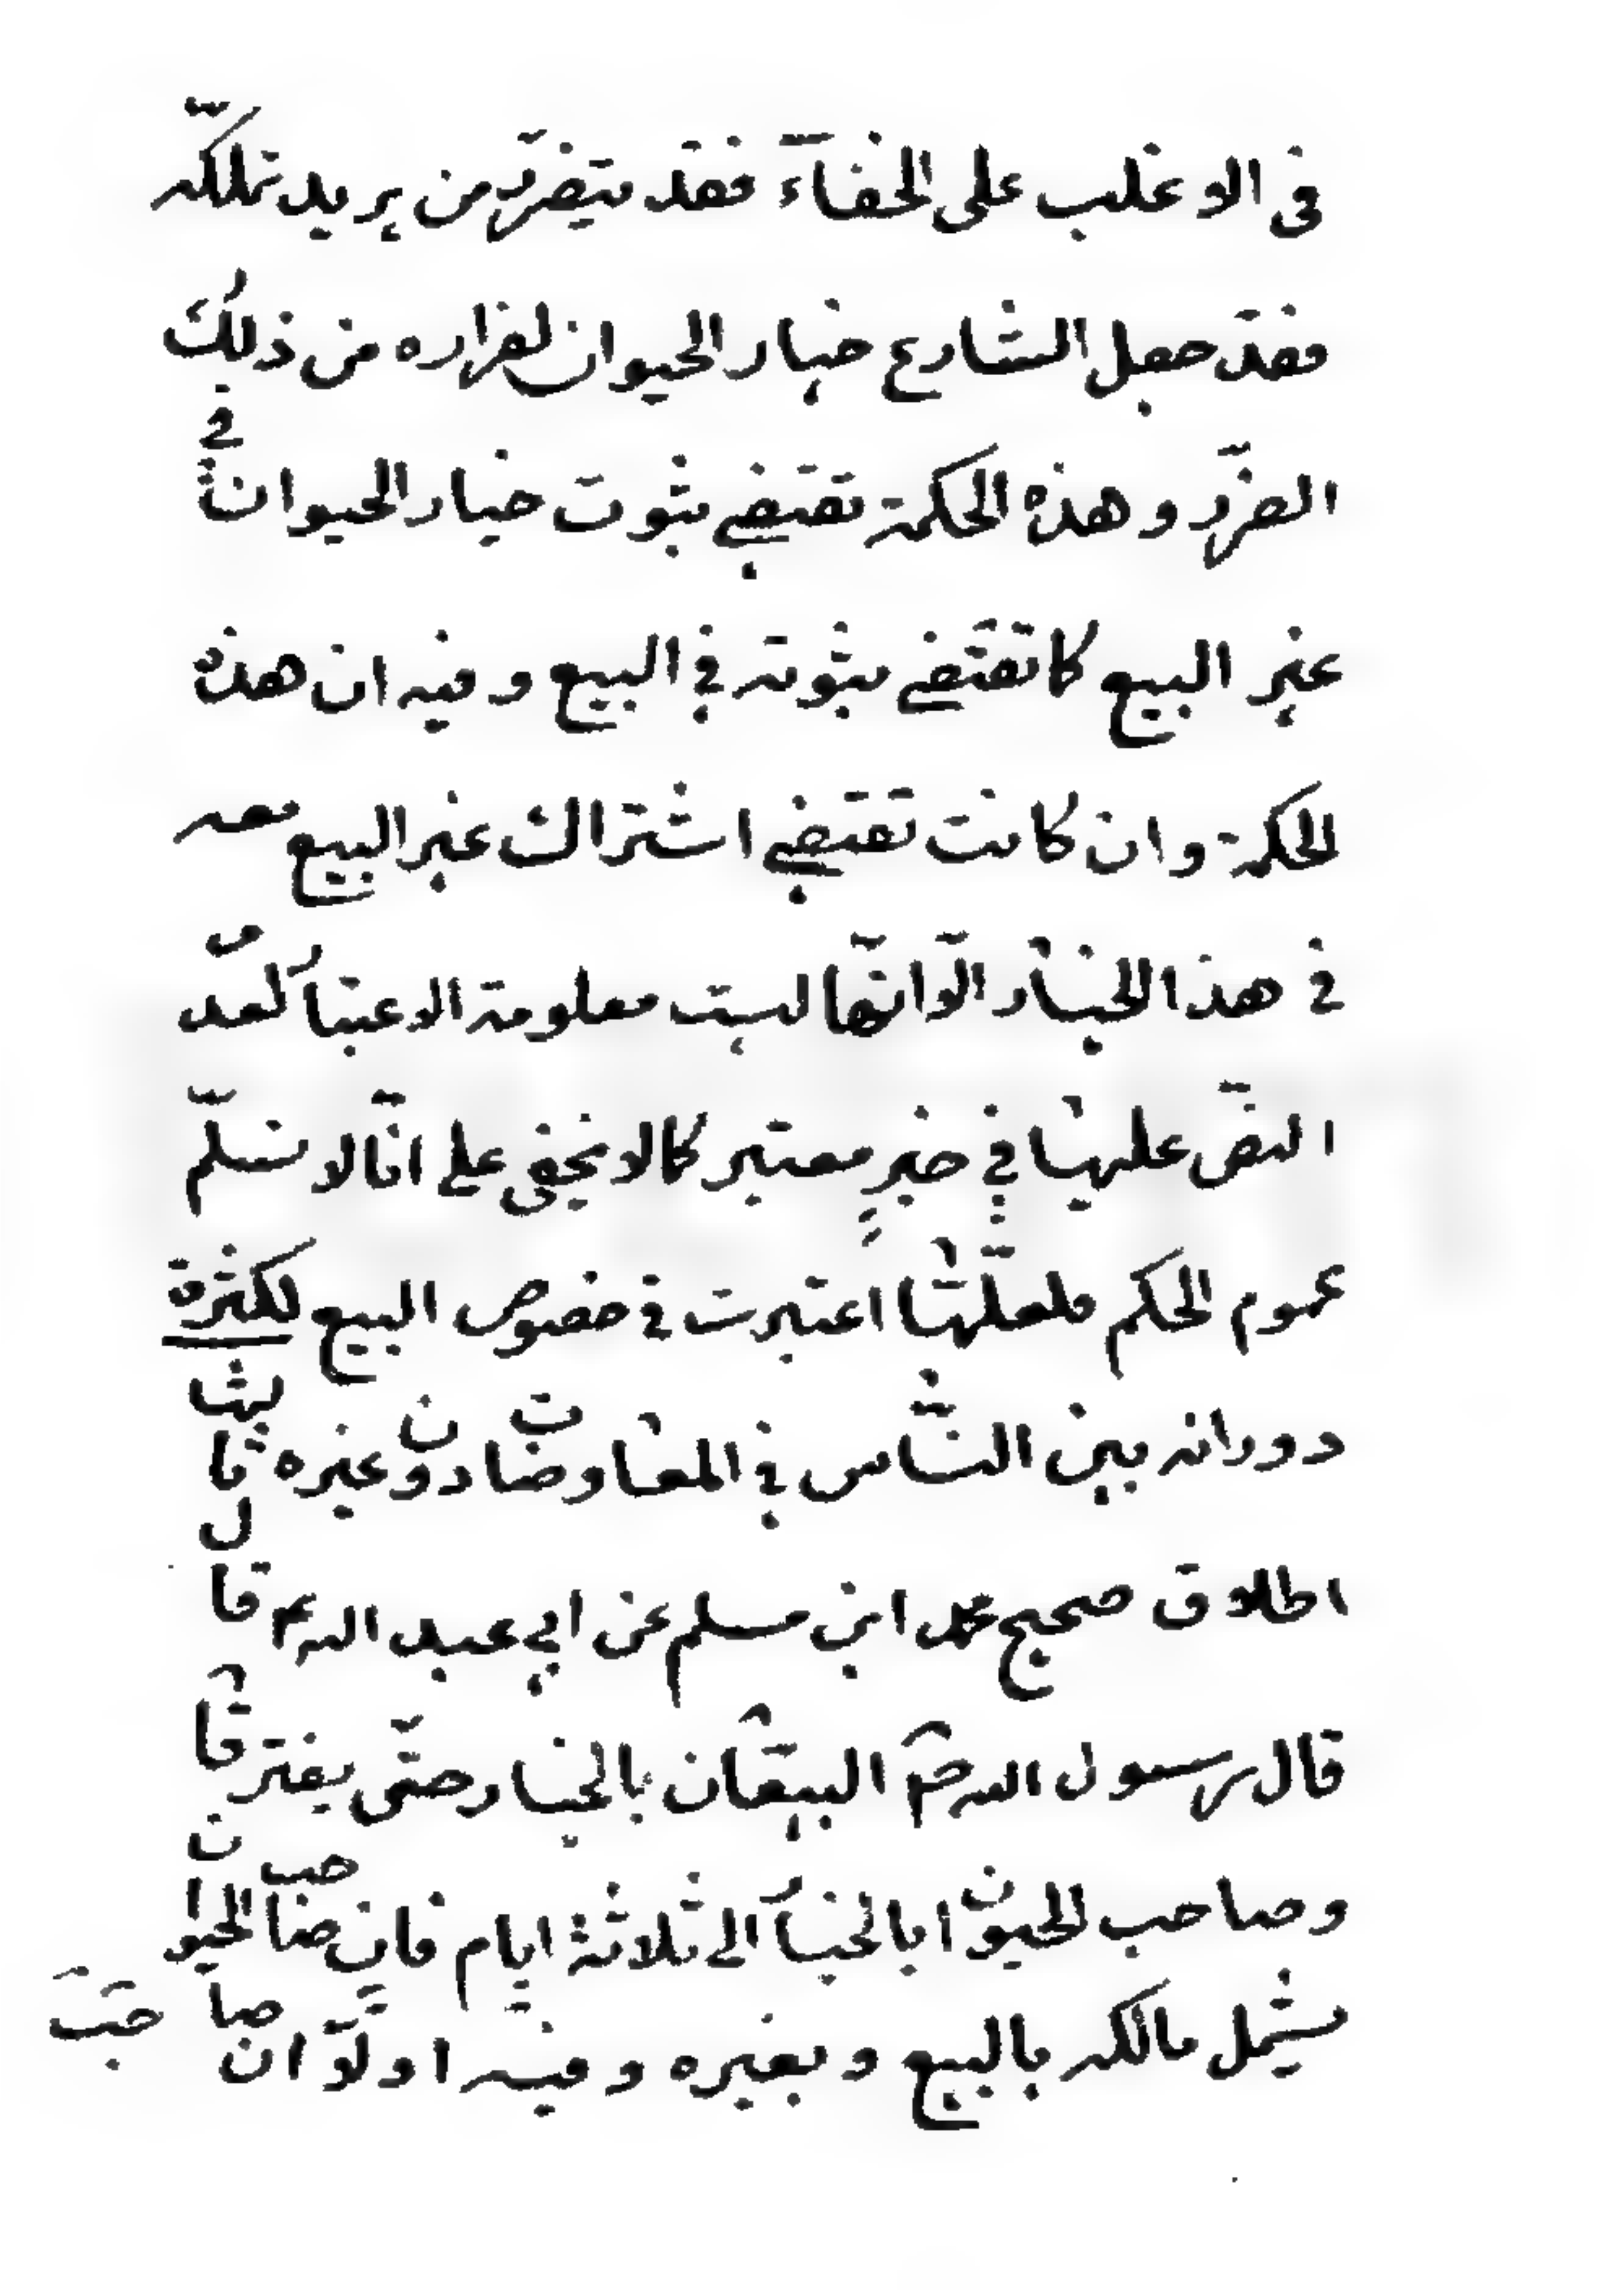 فى الاغلب على الخفآء فقد يتضرّر من يريد تملكّه
فقد جعل الشارع خيار الحيوان لفراره من ذلك
الضرّر وهذه الحكمة تقتضي ثبوت خيار الحيوان في
غير البيع كما تقتضي ثبوته في البيع وفيه ان هذه
الحكمة وان كانت تقتضي اشتراك غير البيع معه
في هذا الخيار الّا انّها ليست معلومة الاعتبار لعدم
النصّ عليها في خبرٍ معتبر كما لا يخفى على انّا لا نسلّم
عموم الحكم فلعلّها اعتبرت في خصوص البيع لكثرة
دورانه بين النّاس في المعاوضات دون غيره ثالثها
اطلاق صحيح محمد ابن مسلم عن ابي عبد الله ع قال
قال رسول الله ص البيّعان بالخيار حتّى يفترقا
وصاحب الحيوان بالخيار الى ثلاثة ايّام فان صاحب الحيوان
يشمل مالكه بالبيع وبغيره وفيه اولّا ان صاحب